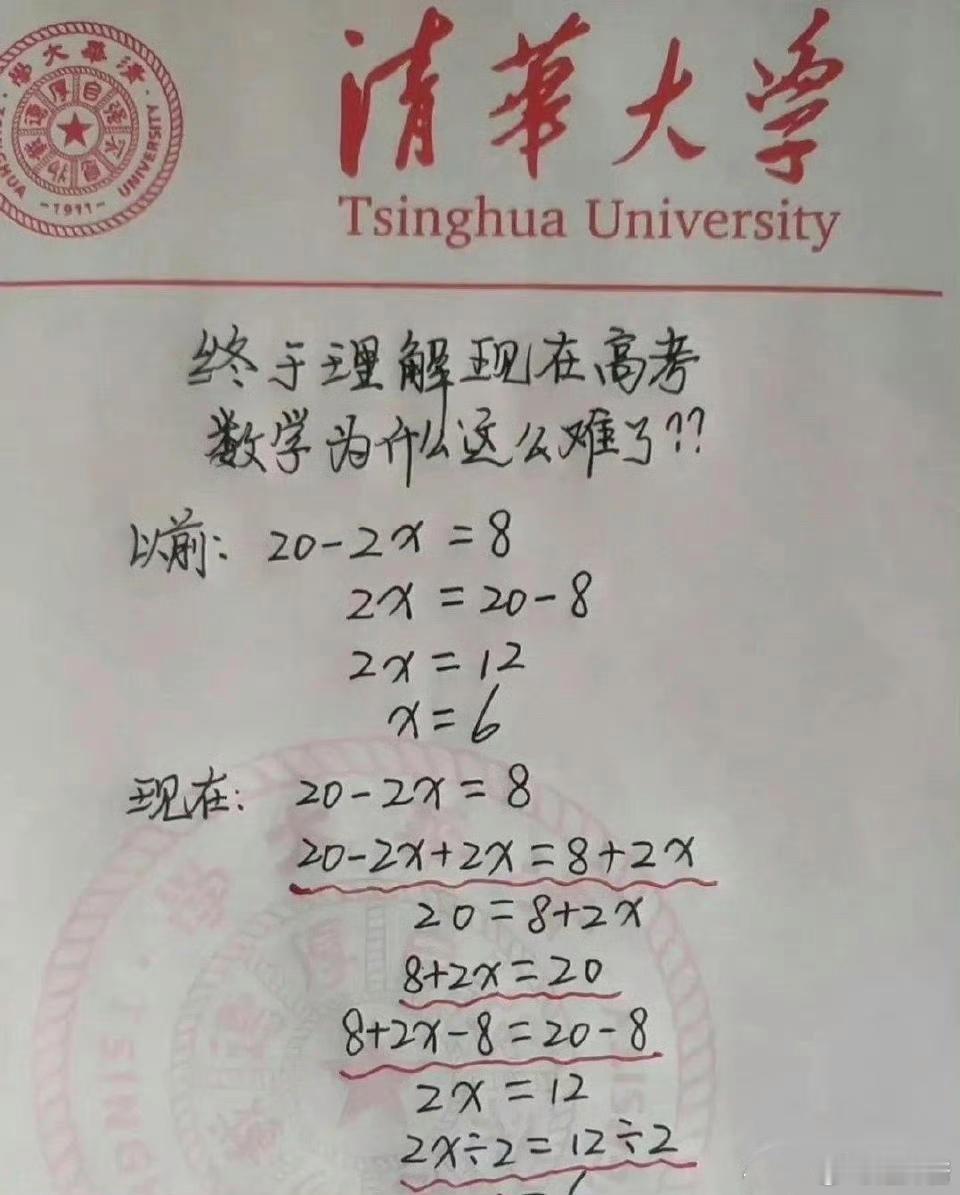 清華大学
Tsinghua University
清華大學
TSINGHUA UNIVERSITY
自强不息
厚德載物
-1911-
终于理解现在高考
数学为什么这么难了??
以前: 20-2x=8
2x=20-8
2x=12
x=6
现在: 20-2x=8
20-2x+2x=8+2x
20=8+2x
8+2x=20
8+2x-8=20-8
2x=12
2x÷2=12÷2